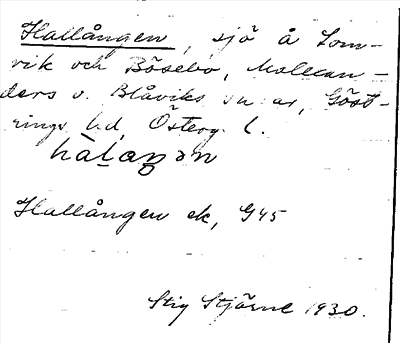 Hallången, sjö å Lom-
vik och Bösebo, Malexan-
ders o. Blåviks sn:ar, Göst-
rings hd, Österg. l.
hàḷaŋən
Hallången ek, G45
Stig Stjärne 1930.